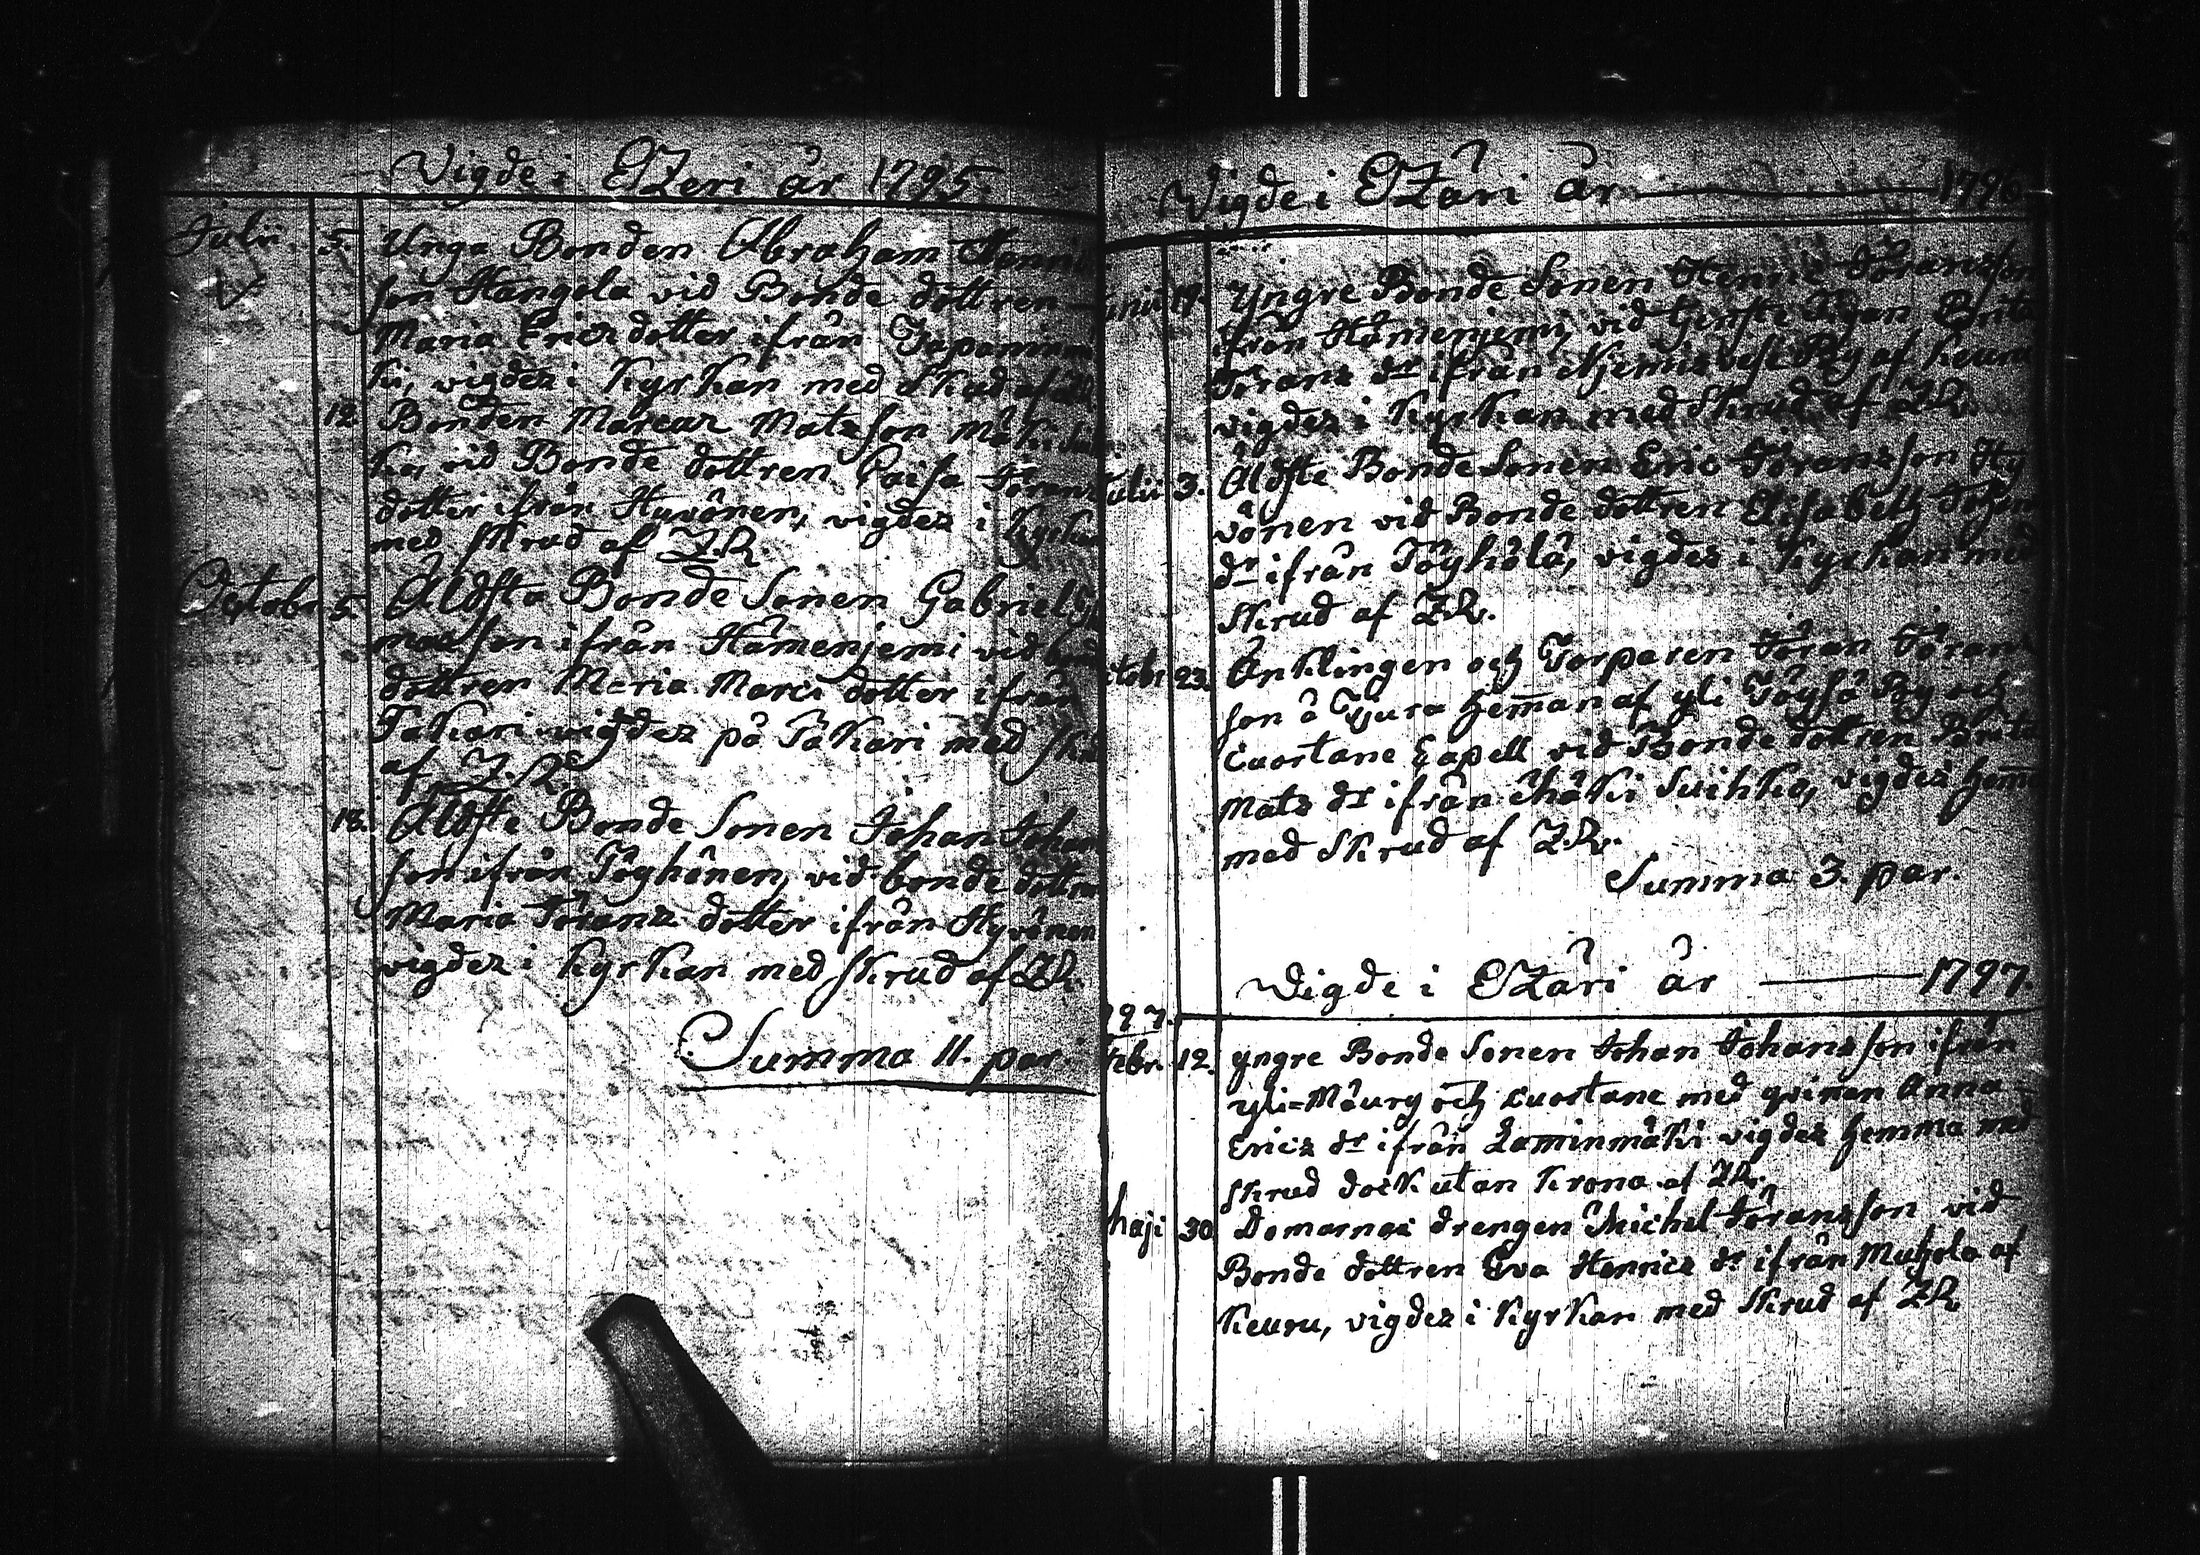 Vigde i Etzeri år 1795.
Julii 5. Unga Bonden Abraham
son Hangola vid Bonde dottren
Maria Erics dotter ifrån
ki, vigdes i Kyrkan med Skrud af
12. Bonden Marcus Mats son Mäki
ka, vid Bonde dottren Caisa Jörans
dotter ifrån Hyvönen, vigdes i Kyrkan
med Skrud af Z.R.
Octobr. 5. Äldsta Bonde Sonen Gabriel
son ifrån Hämenjemi vid bonde
dottren Maria Marcs dotter ifrån
Pakari vigdes på Pakari med Skrud
af Z.R.
18. Äldste Bonde Sonen Johan Johans
son ifrån Töyhönen, vid bonde dottren
Maria Jörans dotter ifrån Hyvönen
vigdes i Kyrkan med Skrud af Z.R.
Summa 11. par.
Vigde i Etzäri år 1796.
Junii 19. Yngre Bonde Sonen Henric Jöransson
ifrån Hämenjemi, vid Brita
Jörans dr ifrån By af Keuru
vigdes i Kyrkan med Skrud af Z.R.
Julii 3. Äldste Bonde Sonen Eric Jöransson Hy
vönen vid Bonde dottren Elisabeth Johans
dr ifrån Töyhölä, vigdes i Kyrkan med
Skrud af Z.R.
Octobr. 23. Änklingen och Torparen Jöran Jörans
son å Tjura Heman af yli Töysä By och
Cuortane Capell vid Bonde dottren Brita
Mats dr ifrån Mäki Suihko, vigdes Hemma
med Skrud af Z.R.
Summa 3. par.
Vigde i Etzäri år 1797.
1797.
Febr. 12. yngre Bonde Sonen Johan Johansson ifrån
yli=Mäury och Cuortane med qvinan Anna
Erics dr ifrån Laminmäki vigdes Hemma med
Skrud dock utan Krona af Z.R.
Maji 30. Domarnas drengen Michel Jöransson vid
Bonde dottren Eva Henrics dr ifrån Muhola af
Keuru, vigdes i Kyrkan med Skrud af Z.R.